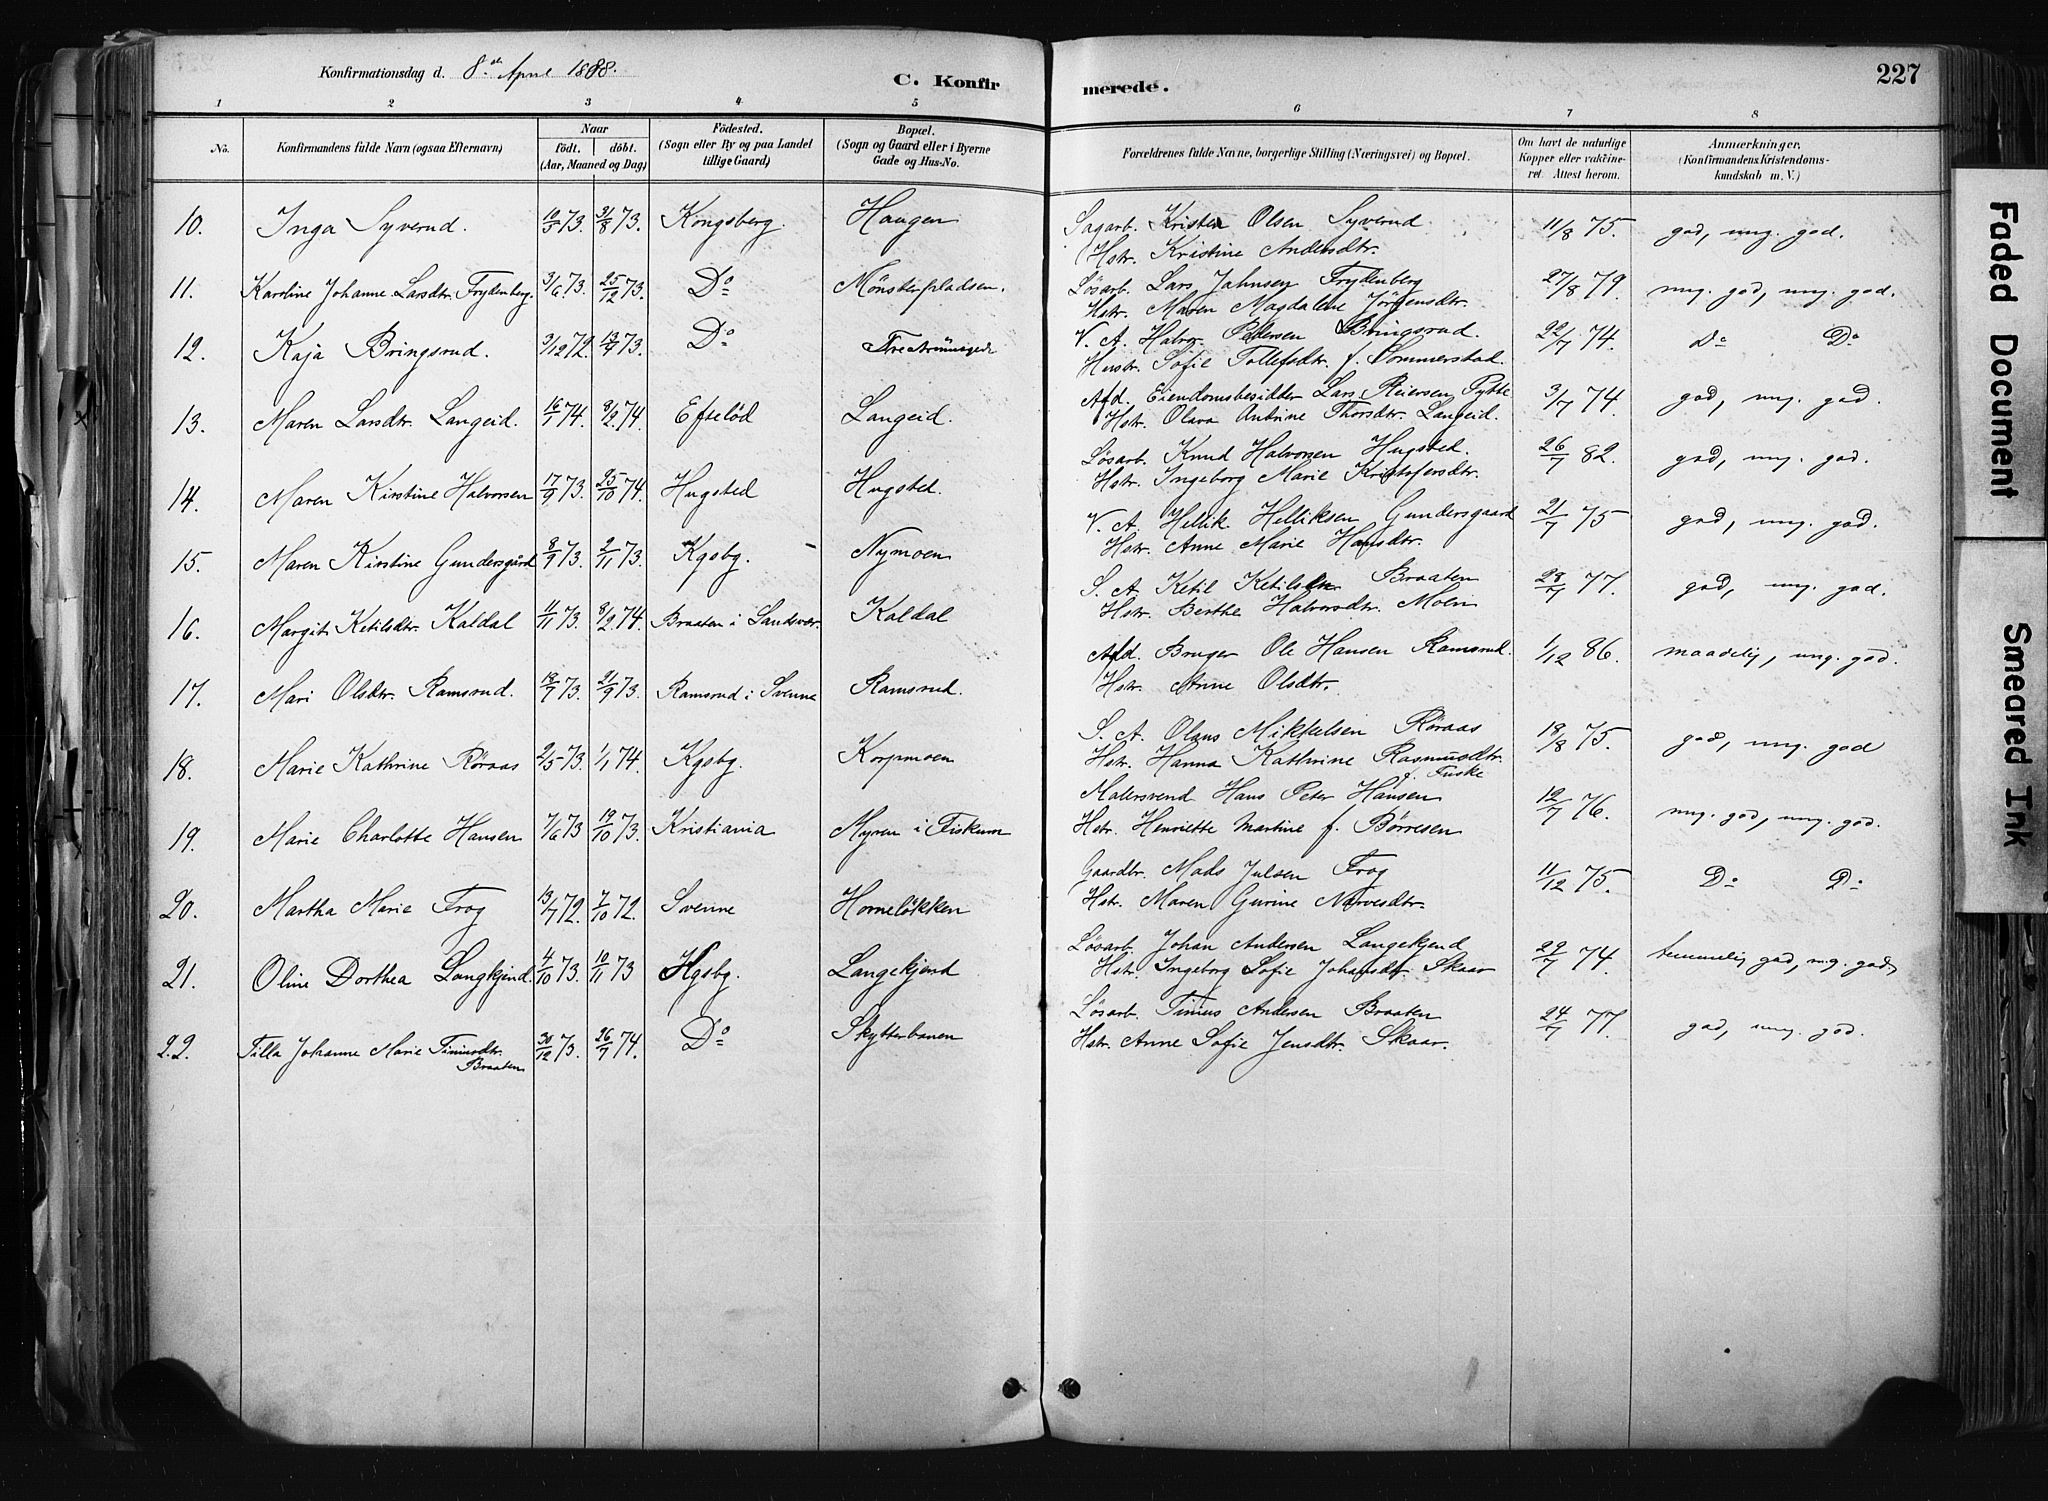 Konfirmationsdag d. 8de April 1888.
C. Konfir merede. 227
1 2 3 4 5 6 7 8
No. Konfirmandens fulde Navn (ogsaa Efternavn) Naar født. døbt. (Aar, Maaned og Dag) Fødested. (Sogn eller By og paa Landet tillige Gaard) Bopæl. (Sogn og Gaard eller i Byerne Gade og Hus-No. Forældrenes fulde Navne, borgerlige Stilling (Næringsvei) og Bopæl. Om havt de naturlige Kopper eller vakcineret. Attest herom. Anmærkninger. (Konfirmandens Kristendomskundskab m. V.)
10. Inga Syverud. 10/5 73. 31/8 73. Kongsberg. Haugen Sagarb. Kristen Olsen Syverud 11/8 75. god, mg. god.
Hstr. Kristine Andersdtr.
11. Karoline Johanne Larsdtr. Frydenberg. 3/6 73. 25/12 73. Do Mønsterpladsen. Løsarb. Lars Jahnsen Frydenberg 27/8 79. mg. god, mg. god.
Hstr. Maren Magdalene Jørgensdtr.
12. Kaja Bringsrud. 3/12 72. 13/4 73. Do V. A. Halvor Pedersen Bringsrud. 22/7 74. Do Do
Hustr. Sofie Tollefsdtr. f. Sommerstad.
13. Maren Larsdtr. Langeid. 16/1 74. 8/2 74. Eftelød Langeid. Afd. Eiendomsbesidder Lars Reiersen Tytte 3/7 74. god, mg. god.
Hstr. Olava Antrine Thorsdtr. Langeid.
14. Maren Kirstine Halvorsen 17/9 73. 25/10 74. Hugsted Hugsted. Løsarb. Knud Halvorsen Hugsted. 26/7 82. god, mg. god.
Hstr. Ingeborg Marie Kristofersdtr.
15. Maren Kirstine Gundersgård 8/9 73. 2/11 73. Kgsbg. Nymoen V. A. Hellik Helliksen Gundersgaard 21/7 75 god, mg. god.
Hstr. Anne Marie Hansdtr.
16. Margit Ketilsdtr. Kaldal 11/11 73. 8/2 74. Braaten i Sandsvær. Kaldal S. A. Ketil Ketilsen Braaten 28/7 77. god, mg. god.
Hstr. Berthe Halvorsdtr. Moen
17. Mari Olsdtr. Ramsrud. 18/7 73. 21/9 73. Ramsrud i Svenne Ramsrud. Afd. Bruger Ole Hansen Ramsrud. 1/12 86. maadelig, mg. god.
Hstr. Anne Olsdtr.
18. Marie Kathrine Røraas 2/5 73. 1/1 74. Kgsbg. Korpmoen S. A. Olaus Mikkelsen Røraas 18/8 75. god, mg. god
Hstr. Hanna Kathrine Rasmusdtr. f. Fuske
19. Marie Charlotte Hansen 7/6 73 19/10 73. Kristiania Myren i Fiskum Malersvend Hans Peter Hansen 12/7 76. mg. god, mg. god.
Hstr. Henriette Martine f. Børresen
20. Martha Marie Frog 13/7 72. 7/10 72. Svenne Horneløkken Gaardbr. Mads Julsen Frog 11/12 75. Do Do
Hstr. Maren Gurine Narvesdtr.
21. Oline Dorthea Langkjend. 4/10 73. 10/11 73 Kgsbg. Langekjend Løsarb. Johan Andersen Langekjend 22/7 74. temmelig god, mg. god.
Hstr. Ingeborg Sofie Johansdtr. Skaar
22. Tilla Johanne Marie Tinusdtr. Braaten 30/12 73. 26/7 74. Do Skytterbanen Løsarb. Tinius Andersen Braaten 24/7 77. god, mg. god.
Hstr. Anne Sofie Jensdtr. Skaar.
Faded Document
Smeared Ink